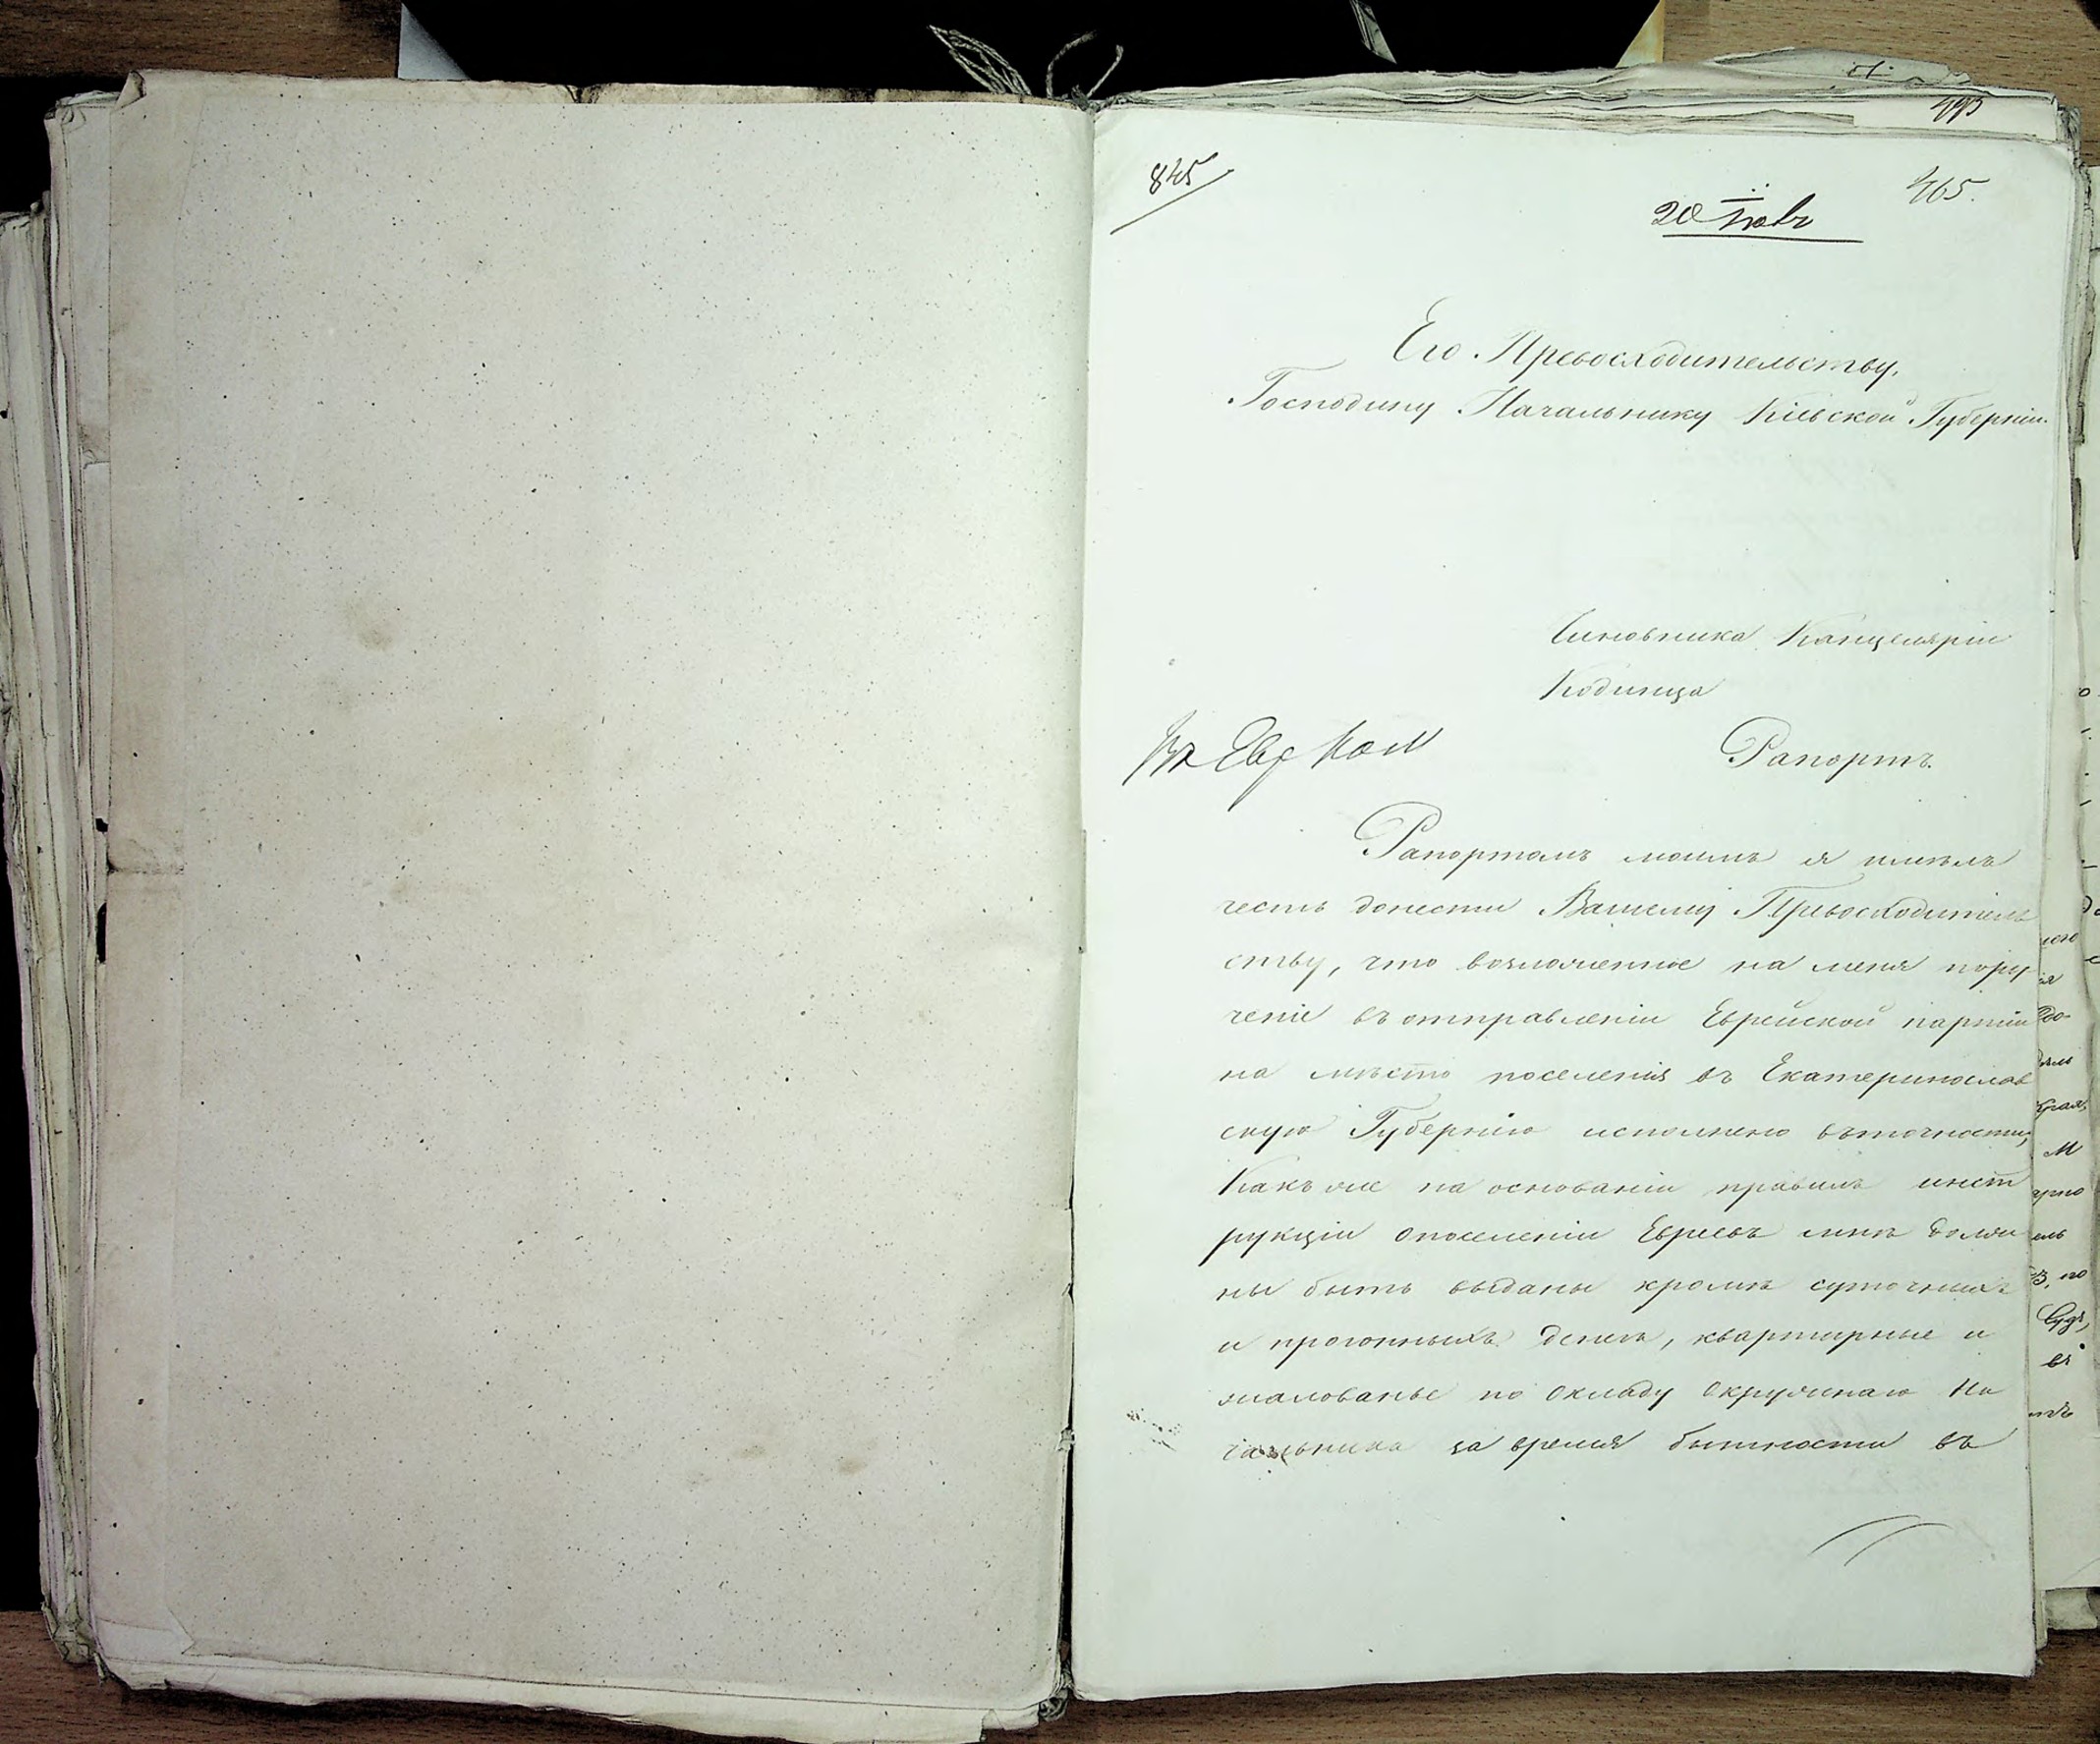 845
465.
20 Іюля
Его Превосходительству,
Господину Начальнику Кіевской Губерніи.
Чиновника Канцеляріи
Кодинца
Рапортъ.
Рапортомъ моимъ я имѣлъ
честь донести Вашему Превосходитель
ству, что возложенное на меня пору
ченіе въ отправленіи Еврейской партіи
на мѣсто поселенія въ Екатеринослав
скую Губернію исполнено въ точности,
Какъ же на основаніи правилъ инст
рукціи о поселеніи Евреевъ мнѣ должн
ны быть выданы кромѣ суточныхъ
и прогонныхъ денегъ, квартирные и
жалованье по окладу Окружнаго На
чальника за время бытности въ